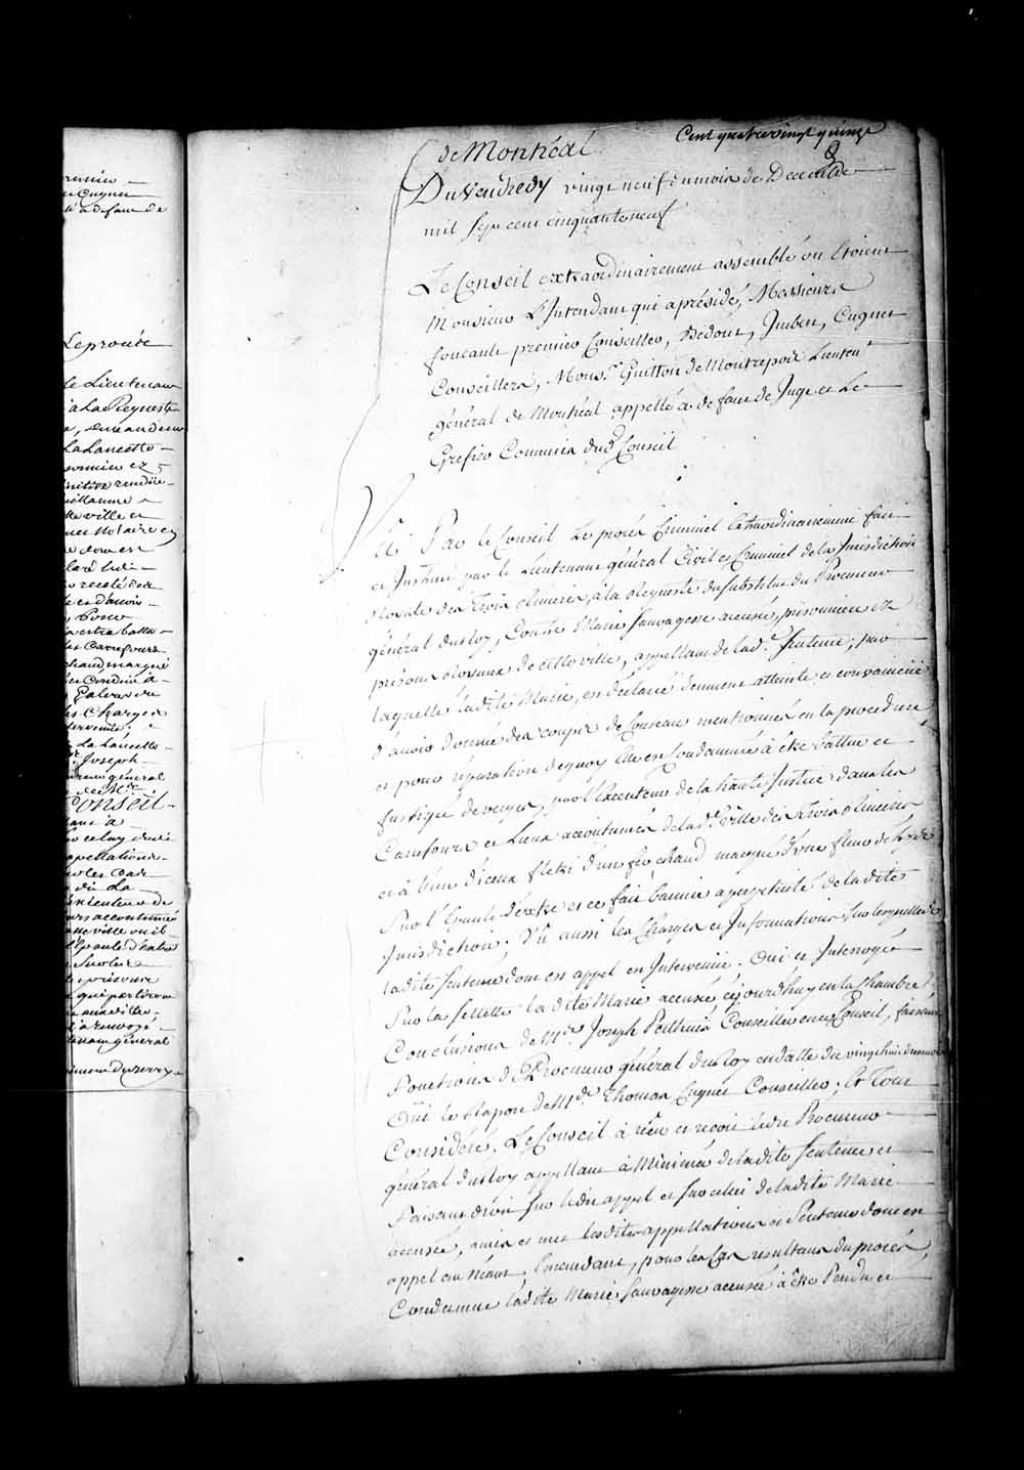 remier
Cugnet
té à defaut de
Le procès
le Lieutenant
a la Requeste
La Lancette
prisonnier es
nitive rendüe
uillaume
ville et
Notaire
dont est
recolé
et d'avoir
estre battu
les Carefours
chaud marqué
Galeres
les Charges
intervenüe
La Lancette
Joseph
reur général
de Me
Conseil
appellations
de La
accoutumés
ville
l'Epaule d'extre
prisons
qui partiron
renvoyé
tenant général
Cent quatre vingt quinze
de Montréal
Du Vendredy vingt neuf du mois de Decembre
mil sept cent cinquante neuf
Le Conseil extraordinairement assemblé ou Etoient
Monsieur L'Intendant qui a présidé, Messieurs
foucault premier Conseiller, Bedout, Imbert, Cugnet
Conseillers, Mons.r Guitton de Montrepos Lieuten.t
général de Montréal appellé a defaut de Juge et Le
Greffier Commis dud. Conseil
Vû Par le Conseil Le procès Criminel Extraordinairement fait
et Instruit par le Lieutenant général Civil et Criminel de la Jurisdiction
Royale des Trois Rivieres, à la Requeste du Substitut du Procureur
général du Roy, Contre Marie Sauvagesse accusée, prisonniere es
prisons Royaux de cette ville, appellante de lad.e Sentence, par
laquelle ladite Marie, est déclarée duement atteinte et convaincüe
d'avoir donné des coups de Couteau mentionnés en la procedure
et pour réparation dequoy elle est Condamnée à être battue et
fustigée de verges, par l'Executeur de la haute Justice dans les
Carrefours et Lieux accoutumés de lad.e Ville des Trois Rivieres
et à l'un d'iceux flétri d'un fer chaud marqué d'une fleur de Lys
Sur l'Epaule d'extre et ce fait bannie a perpetuité de ladite
Jurisdiction. Vû aussi les Charges et Informations Sur lesquelles
ladite Sentence dont est appel est Intervenüe. Oui et Interrogée
Sur la Sellette ladite Marie accusée cejourd'huy en la Chambre
Conclusions de M.e Joseph Perthuis Conseiller en ce Conseil, faisant
fonctions de Procureur général du Roy en datte du vingt huit du mois
Oüi le Rapport de M.e Thomas Cugnet Conseiller; Et Tout
Considéré. Le Conseil à reçu et reçoit ledit Procureur
général du Roy appellant à Minima de ladite Sentence et
Faisant droit Sur ledit appel et Sur celui de ladite Marie
accusée, a mis et met lesdites appellations et Sentence dont est
appel au néant, Emendant, pour les Cas resultans du procès,
Condamne ladite Marie Sauvagesse accusée à être Pendüe et